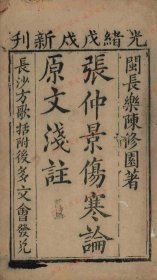 光緒戊戌新刊
閩長樂陳修園著
張仲景傷寒論
原文淺註
長沙方歌括附後多文會發兌